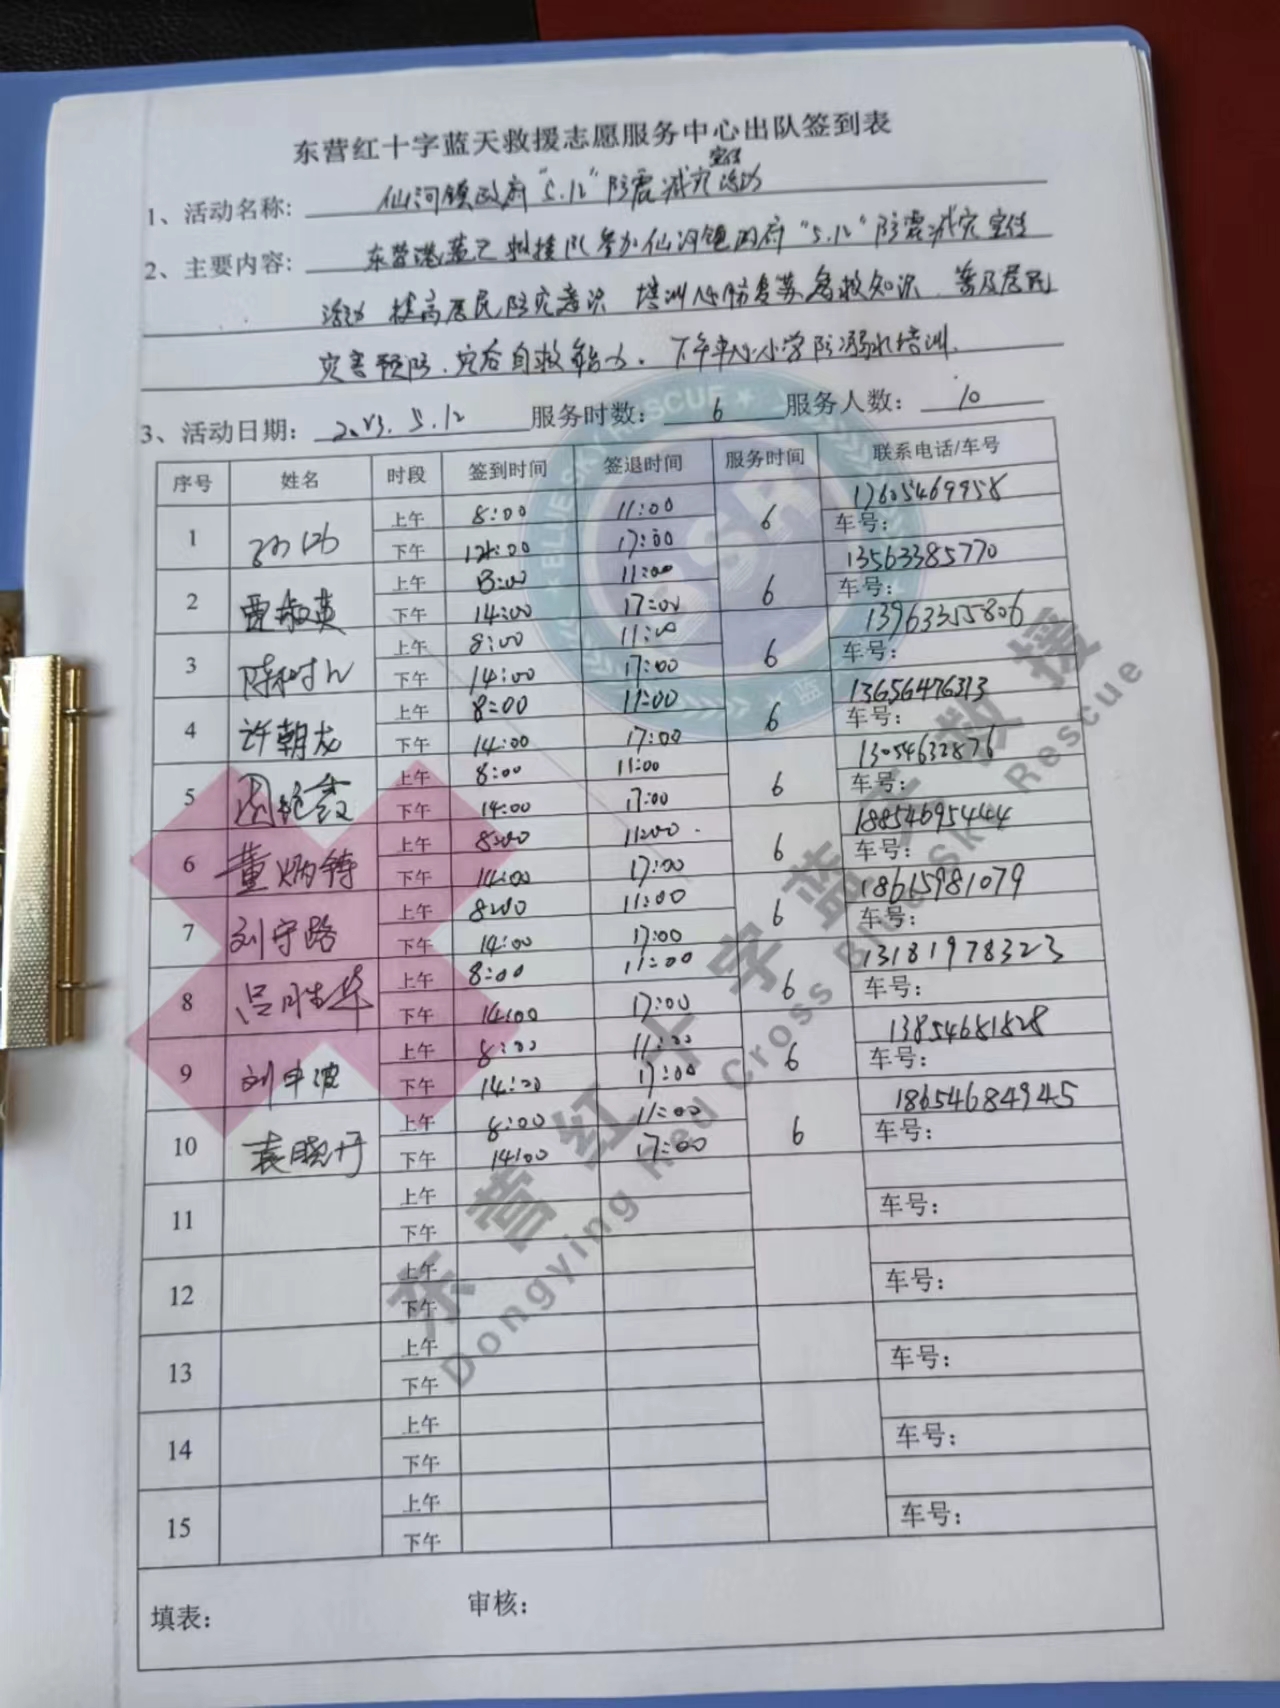 东营红十字蓝天救援志愿服务中心出队签到表
1、活动名称: 仙河镇政府“5.12”防震减灾宣传活动
2、主要内容: 东营港蓝天救援队参加仙河镇政府“5.12”防震减灾宣传
活动 提高居民防灾意识 培训心肺复苏急救知识、普及居民
灾害预防、灾后自救能力. 下午 小学防溺水培训.
3、活动日期: 2023.5.12 服务时数: 6 服务人数: 10
序号 姓名 时段 签到时间 签退时间 服务时间 联系电话/车号
1 上午 8:00 11:00 6 17605469958
下午 17:00 车号:
2 贾淑英 上午 8:00 11:00 6 13563385770
下午 14:00 17:00 车号:
3 上午 8:00 11:00 6 13963355806
下午 14:00 17:00 车号:
4 许朝龙 上午 8:00 11:00 6 13656476313
下午 14:00 17:00 车号:
5 上午 8:00 11:00 6 13054632876
下午 14:00 17:00 车号:
6 董炳铸 上午 8:00 11:00 6 18854695444
下午 14:00 17:00 车号:
7 刘守路 上午 8:00 11:00 6 18615981079
下午 14:00 17:00 车号:
8 吕胜华 上午 8:00 11:00 6 13181978323
下午 14:00 17:00 车号:
9 刘中波 上午 8:00 11:00 6 13854681828
下午 14:00 17:00 车号:
10 袁晓丹 上午 8:00 11:00 6 18654684945
下午 14:00 17:00 车号:
11 上午
下午 车号:
12 上午
下午 车号:
13 上午
下午 车号:
14 上午
下午 车号:
15 上午
下午 车号:
填表: 审核:
BLUE SKY RESCUE
东营红十字蓝天救援
Dongying Red Cross Blue Sky Rescue